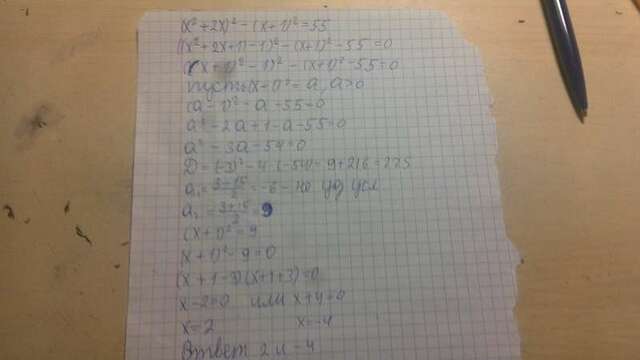 (x²+2x)²-(x+1)²=55
(x²+2x+1-1)²-(x+1)²-55=0
((x+1)²-1)²-(x+1)²-55=0
пусть (x+1)²=a, a>0
(a-1)²-a-55=0
a²-2a+1-a-55=0
a²-3a-54=0
D=(-3)²-4·(-54)=9+216=225
a₁=(3-15)/2=-6 - не уд усл
a₂=(3+15)/2=9
(x+1)²=9
(x+1)²-9=0
(x+1-3)(x+1+3)=0
x-2=0 или x+4=0
x=2 x=-4
Ответ 2 и -4